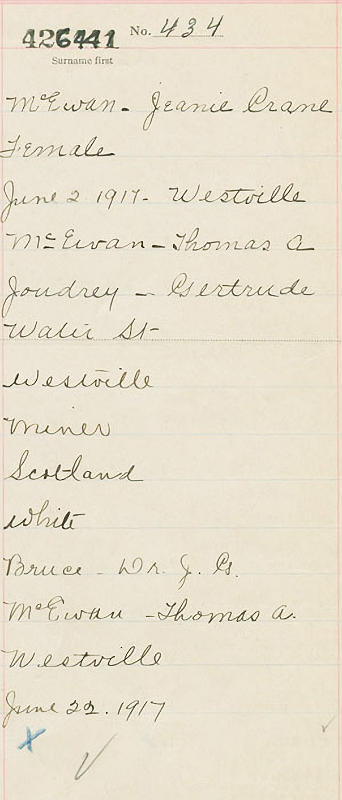 426441 No. 434
Surname first
McEwan - Jeanie Crane
Female
June 2 1917 - Westville
McEwan - Thomas A
Joudrey - Gertrude
Water St
Westville
Miner
Scotland
White
Bruce - Dr. J. G.
McEwan - Thomas A.
Westville
June 22. 1917